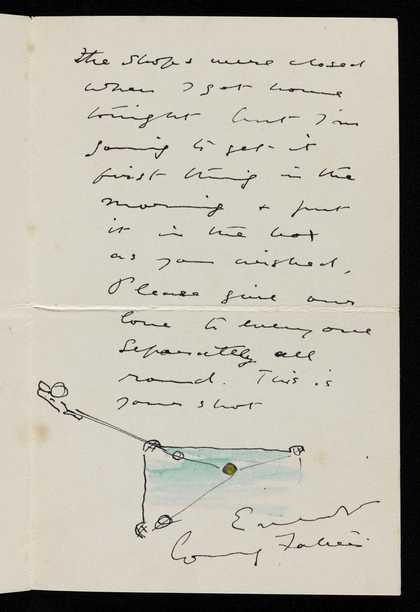 The shops were closed
when I got home
tonight but I'm
going to get it
first thing in the
morning + put
it in the box
as you wished.
Please give our
love to everyone
separately all
round. This is
your shot